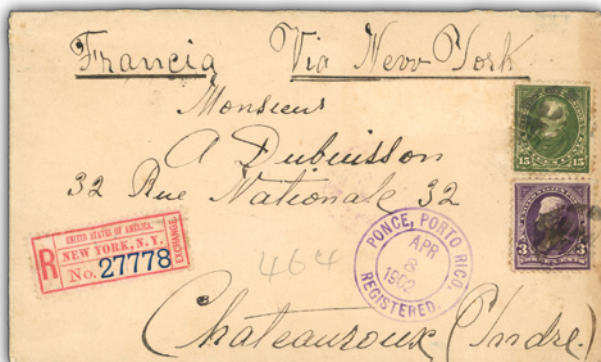 Francia Via New York
Monsieur
A Dubuisson
32 Rue Nationale 32
15 15
3 3
UNITED STATES OF AMERICA.
NEW YORK, N.Y.
EXCHANGE
R No. 27778
464
PONCE, PORTO RICO.
APR
8
1902
REGISTERED.
Chateauroux (Indre.)